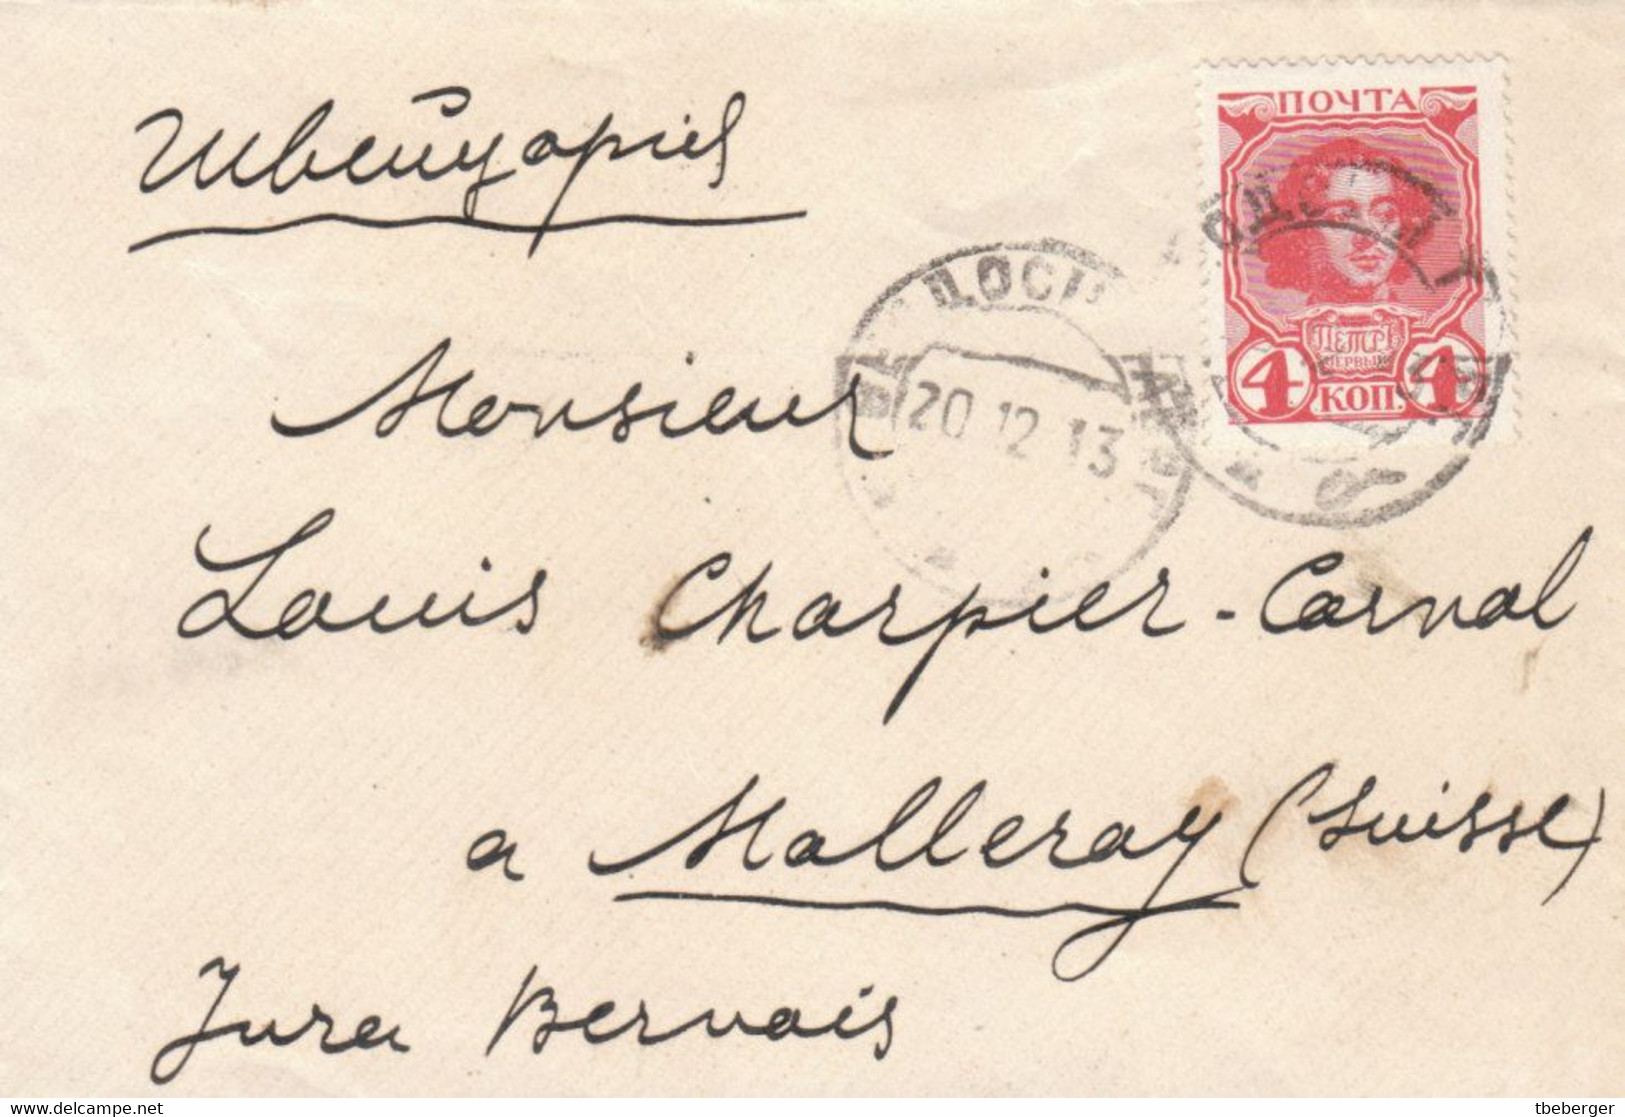 Швейцарія
ПОЧТА
ПЕТРЪ
ПЕРВЫЙ
4 КОП. 4
20.12.13
Monsieur
Louis Charpier-Carnal
a Malleray (Suisse)
Jura Bernois
Copyright(c) delcampe.net
tbeberger